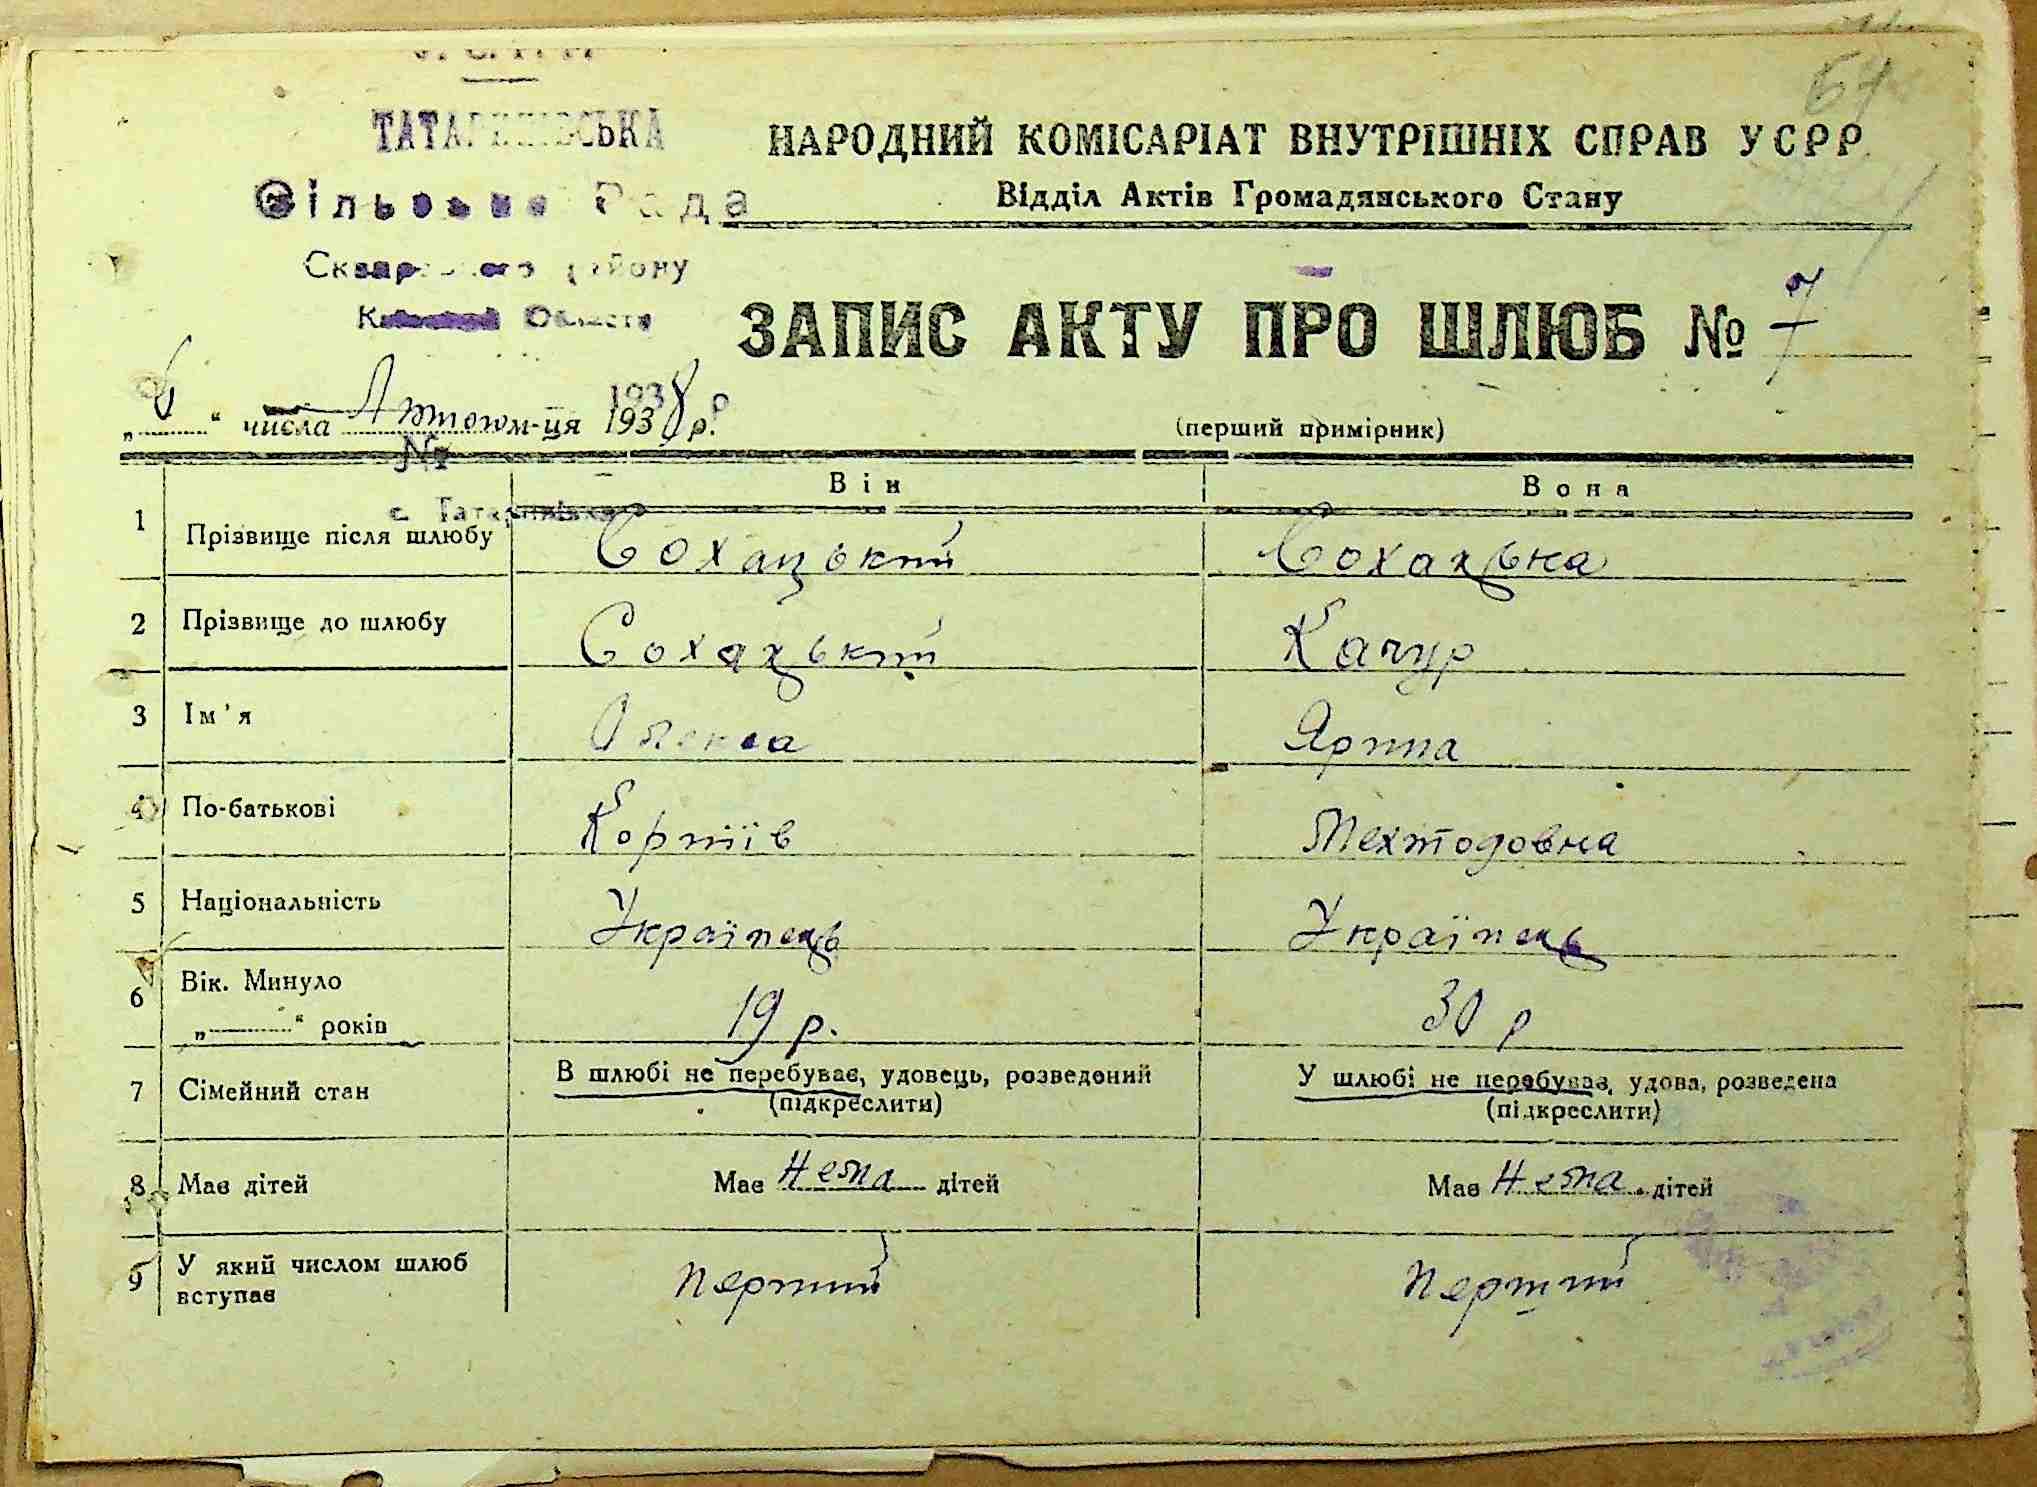 64
ТАТАРИНІВСЬКА
Сільська Рада
Сквирського району
Області
1938 р
№
с. Татаринівка
НАРОДНИЙ КОМІСАРІАТ ВНУТРІШНІХ СПРАВ УСРР
Відділ Актів Громадянського Стану
ЗАПИС АКТУ ПРО ШЛЮБ № 7
„6“ числа Лютого м-ця 1938 р.
(перший примірник)
Він Вона
1 Прізвище після шлюбу Сохацький Сохацька
2 Прізвище до шлюбу Сохацький Качур
3 Ім'я Олекса Ярина
4 По-батькові Корніїв Мехтодовна
5 Національність Українець Українець
6 Вік. Минуло
„ “ років 19 р. 30 р
7 Сімейний стан В шлюбі не перебуває, удовець, розведений У шлюбі не перебуває, удова, розведена
(підкреслити) (підкреслити)
8 Має дітей Має Нема дітей Має Нема дітей
9 У який числом шлюб
вступає перший перший